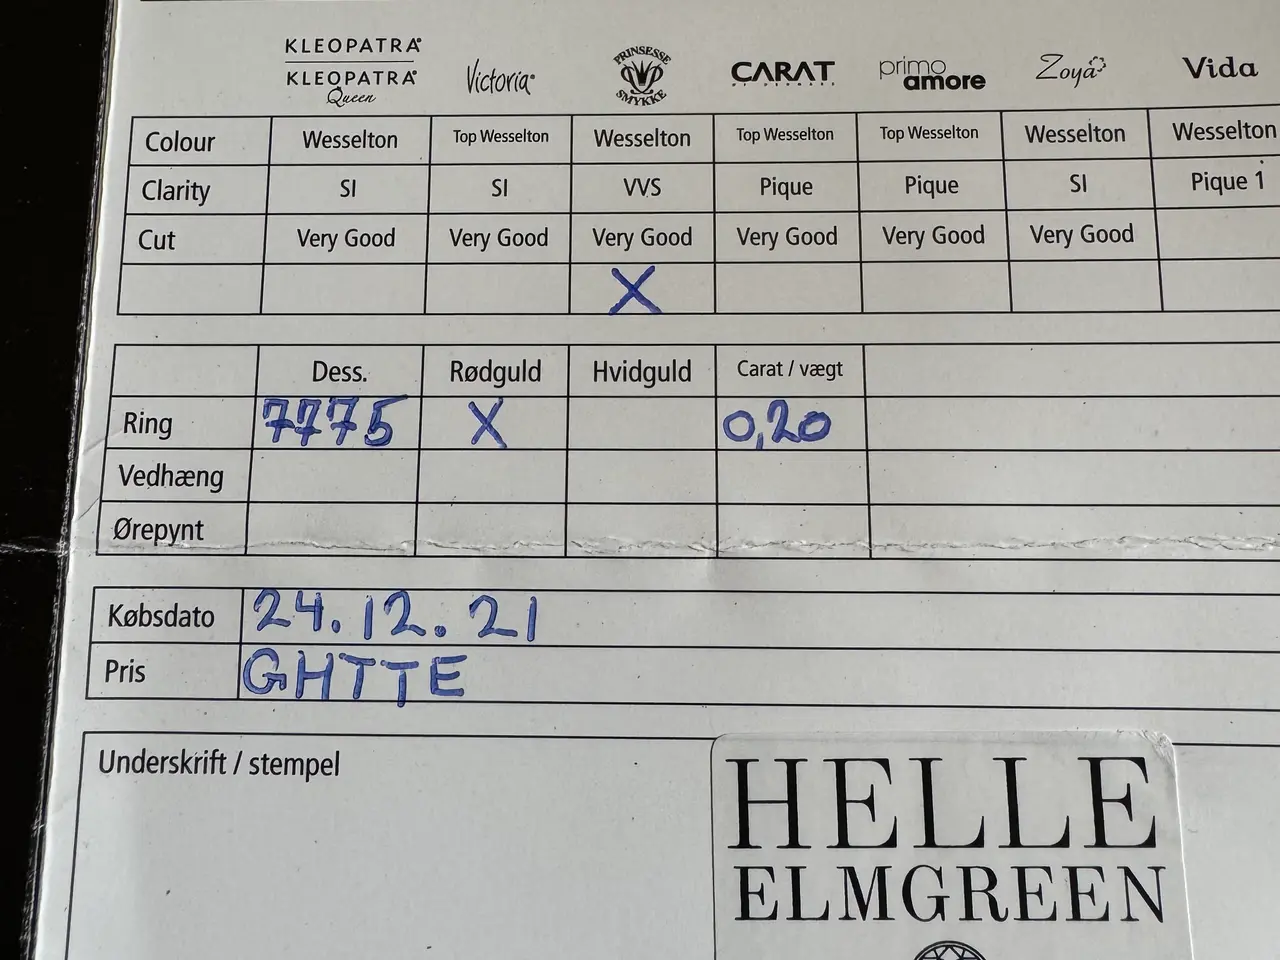 KLEOPATRA®
KLEOPATRA® Queen Victoria® PRINSESSE SMYKKE CARAT primo amore Zoya Vida
Colour Wesselton Top Wesselton Wesselton Top Wesselton Top Wesselton Wesselton Wesselton
Clarity SI SI VVS Pique Pique SI Pique 1
Cut Very Good Very Good Very Good Very Good Very Good Very Good
X
Dess. Rødguld Hvidguld Carat / vægt
Ring 7775 X 0,20
Vedhæng
Ørepynt
Købsdato 24.12.21
Pris GHTTE
Underskrift / stempel
HELLE
ELMGREEN